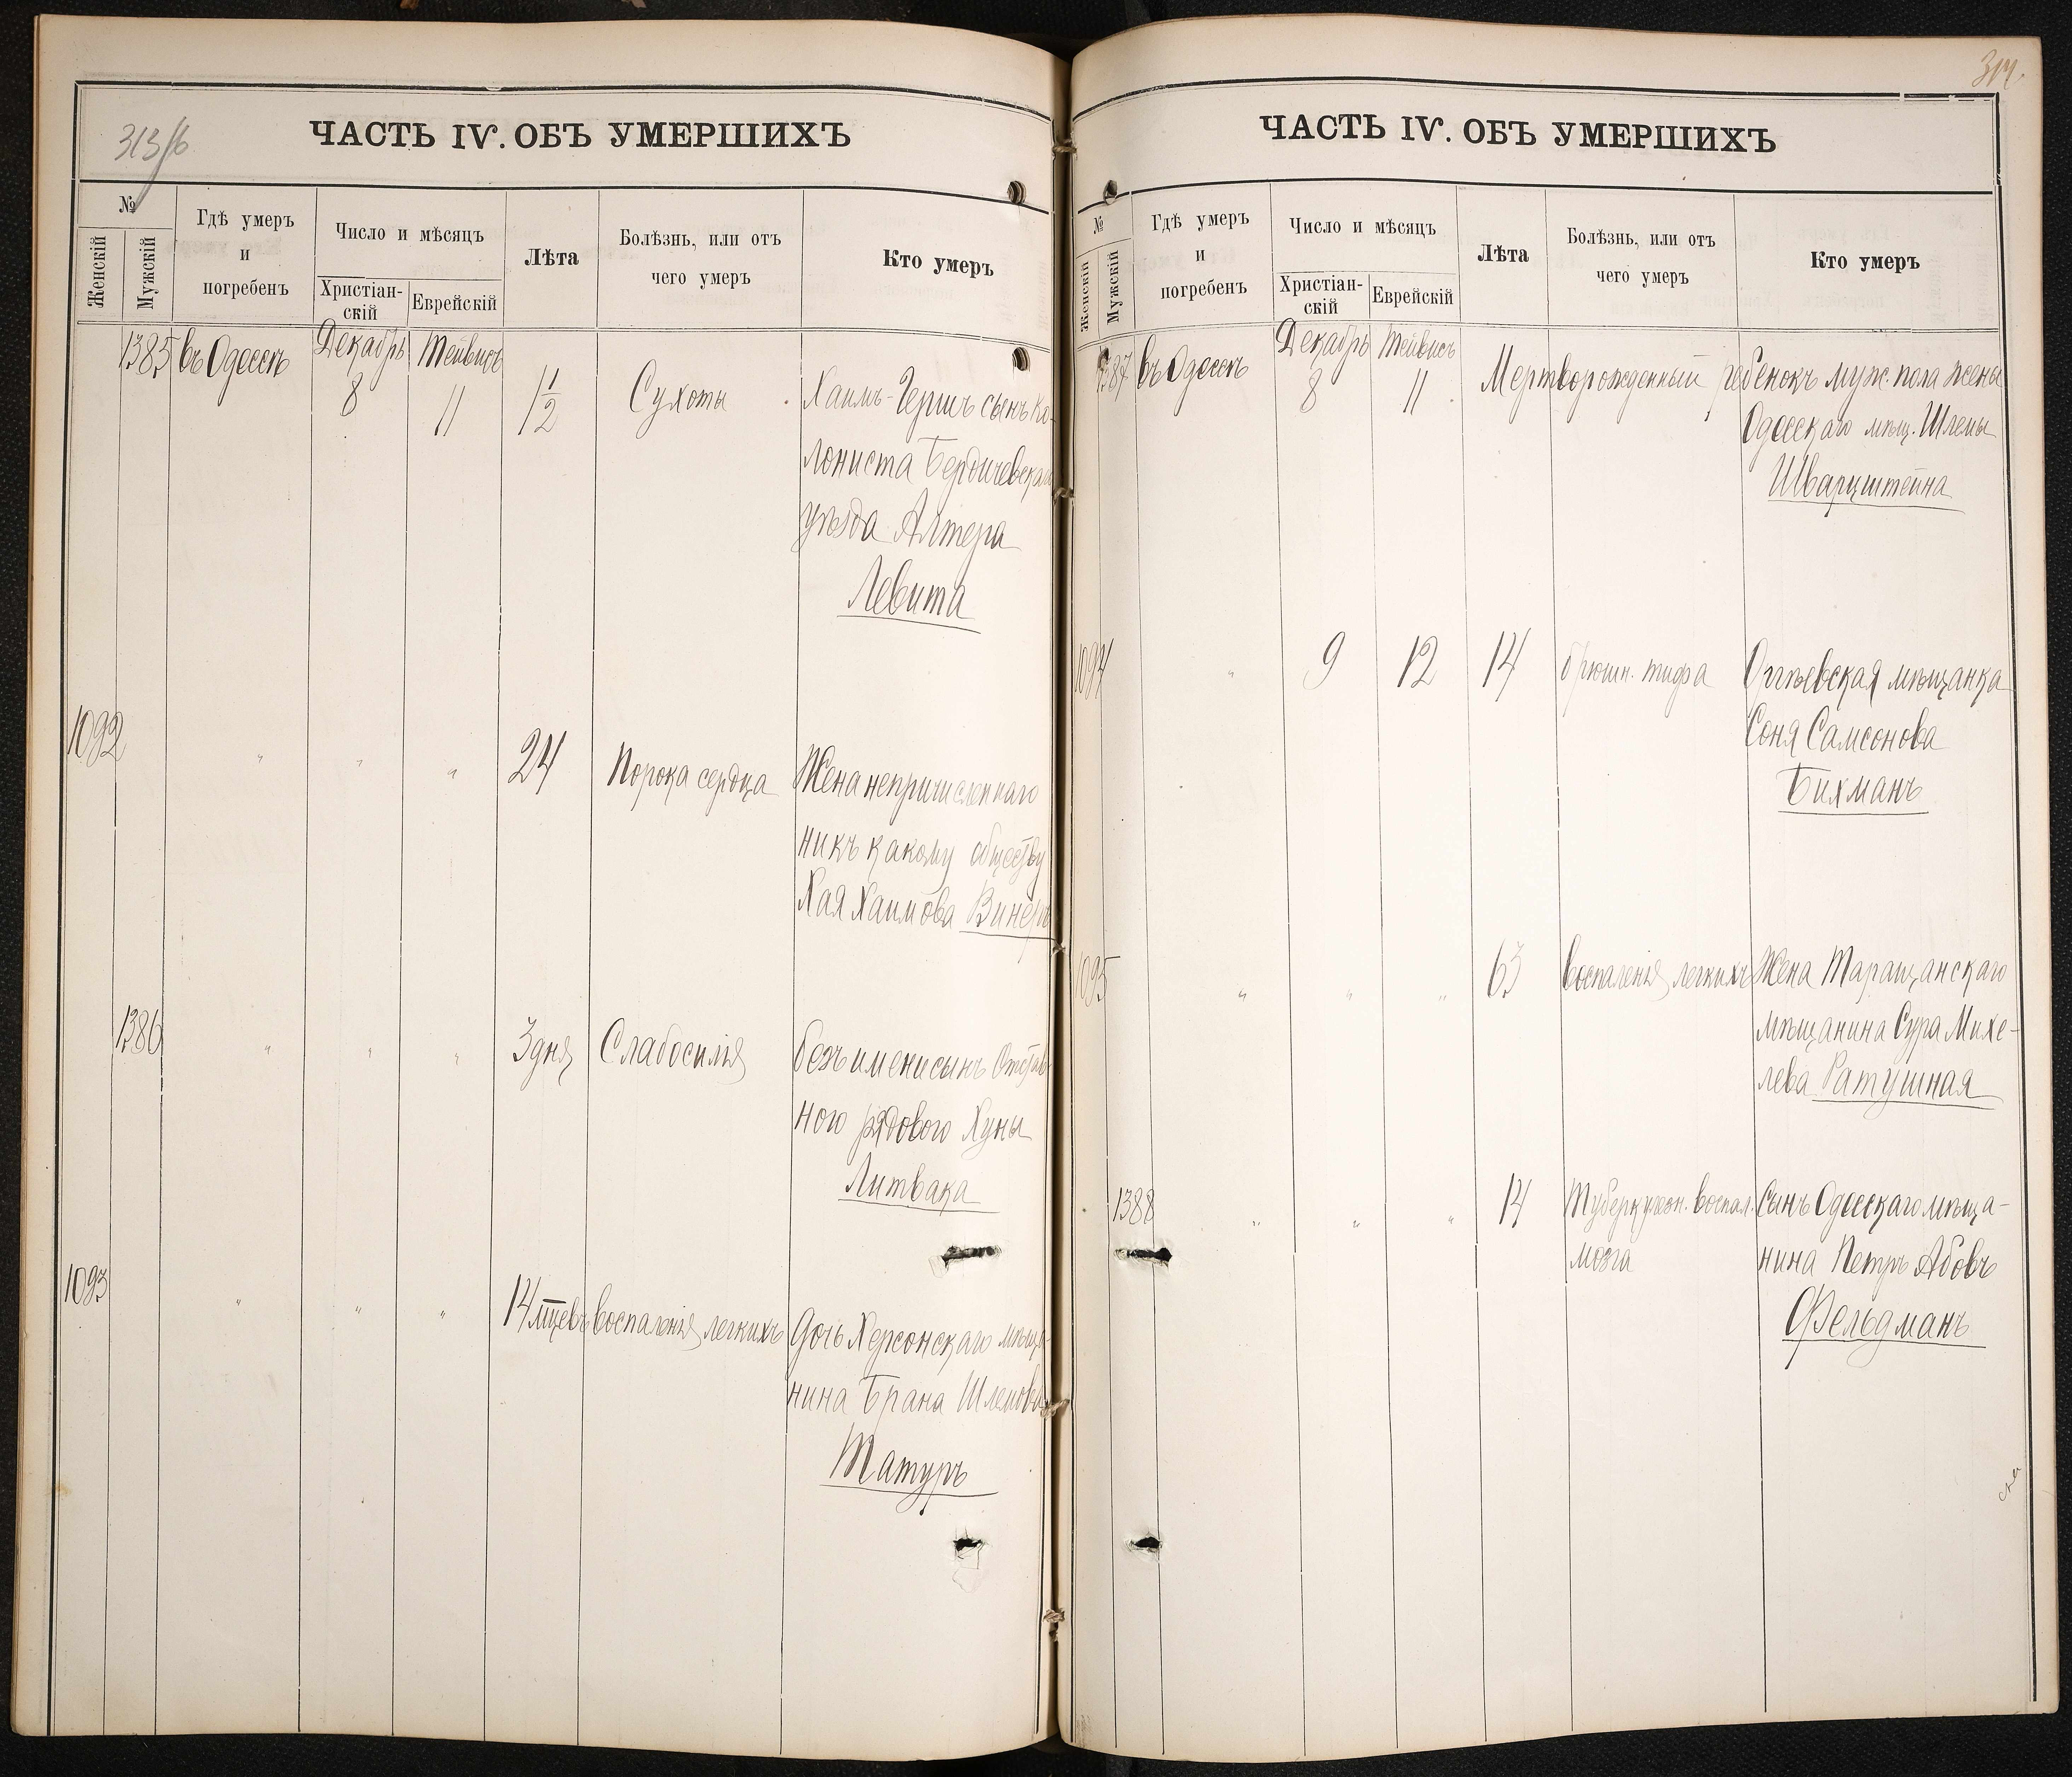 313/б
ЧАСТЬ IV. ОБЪ УМЕРШИХЪ
№
Женскій
Мужскій
Гдѣ умеръ
и
погребенъ
Число и мѣсяцъ
Христіан-
скій
Еврейскій
Лѣта
Болѣзнь, или отъ
чего умеръ
Кто умеръ
1385 въ Одессѣ Декабрь 8 Тейвисъ 11 1 1/2 Сухоты Хаимъ-Гершъ сынъ ко-
лониста Бердичевскаго
уѣзда Алтера
Левита
1092 " " " 24 Порока сердца Жена непричисленнаго
никъ какому обществу
Хая Хаимова Винеръ
1386 " " " 3 дня Слабосилія безъ имени сынъ Отстав-
ного рядового Хуны
Литвака
1093 " " " 14 мцевъ воспаленія легкихъ Дочь Херсонскаго мѣща-
нина Брана Шлемова
Татуръ
314.
ЧАСТЬ IV. ОБЪ УМЕРШИХЪ
№
Женскій
Мужскій
Гдѣ умеръ
и
погребенъ
Число и мѣсяцъ
Христіан-
скій
Еврейскій
Лѣта
Болѣзнь, или отъ
чего умеръ
Кто умеръ
1387 въ Одессѣ Декабрь 8 Тейвисъ 11 Мертворожденный ребенокъ муж. пола жены
Одесскаго мѣщ. Шлемы
Шварцштейна
1094 " 9 12 14 брюшн. тифа Оргѣевская мѣщанка
Соня Самсонова
Бихманъ
1095 " " " 63 воспаленія легкихъ Жена Таращанскаго
мѣщанина Сура Михе-
лева Ратушная
1388 " " " 14 Туберкулезн. воспал. Сынъ Одесскаго мѣща-
мозга нина Петръ Абовъ
Фельдманъ